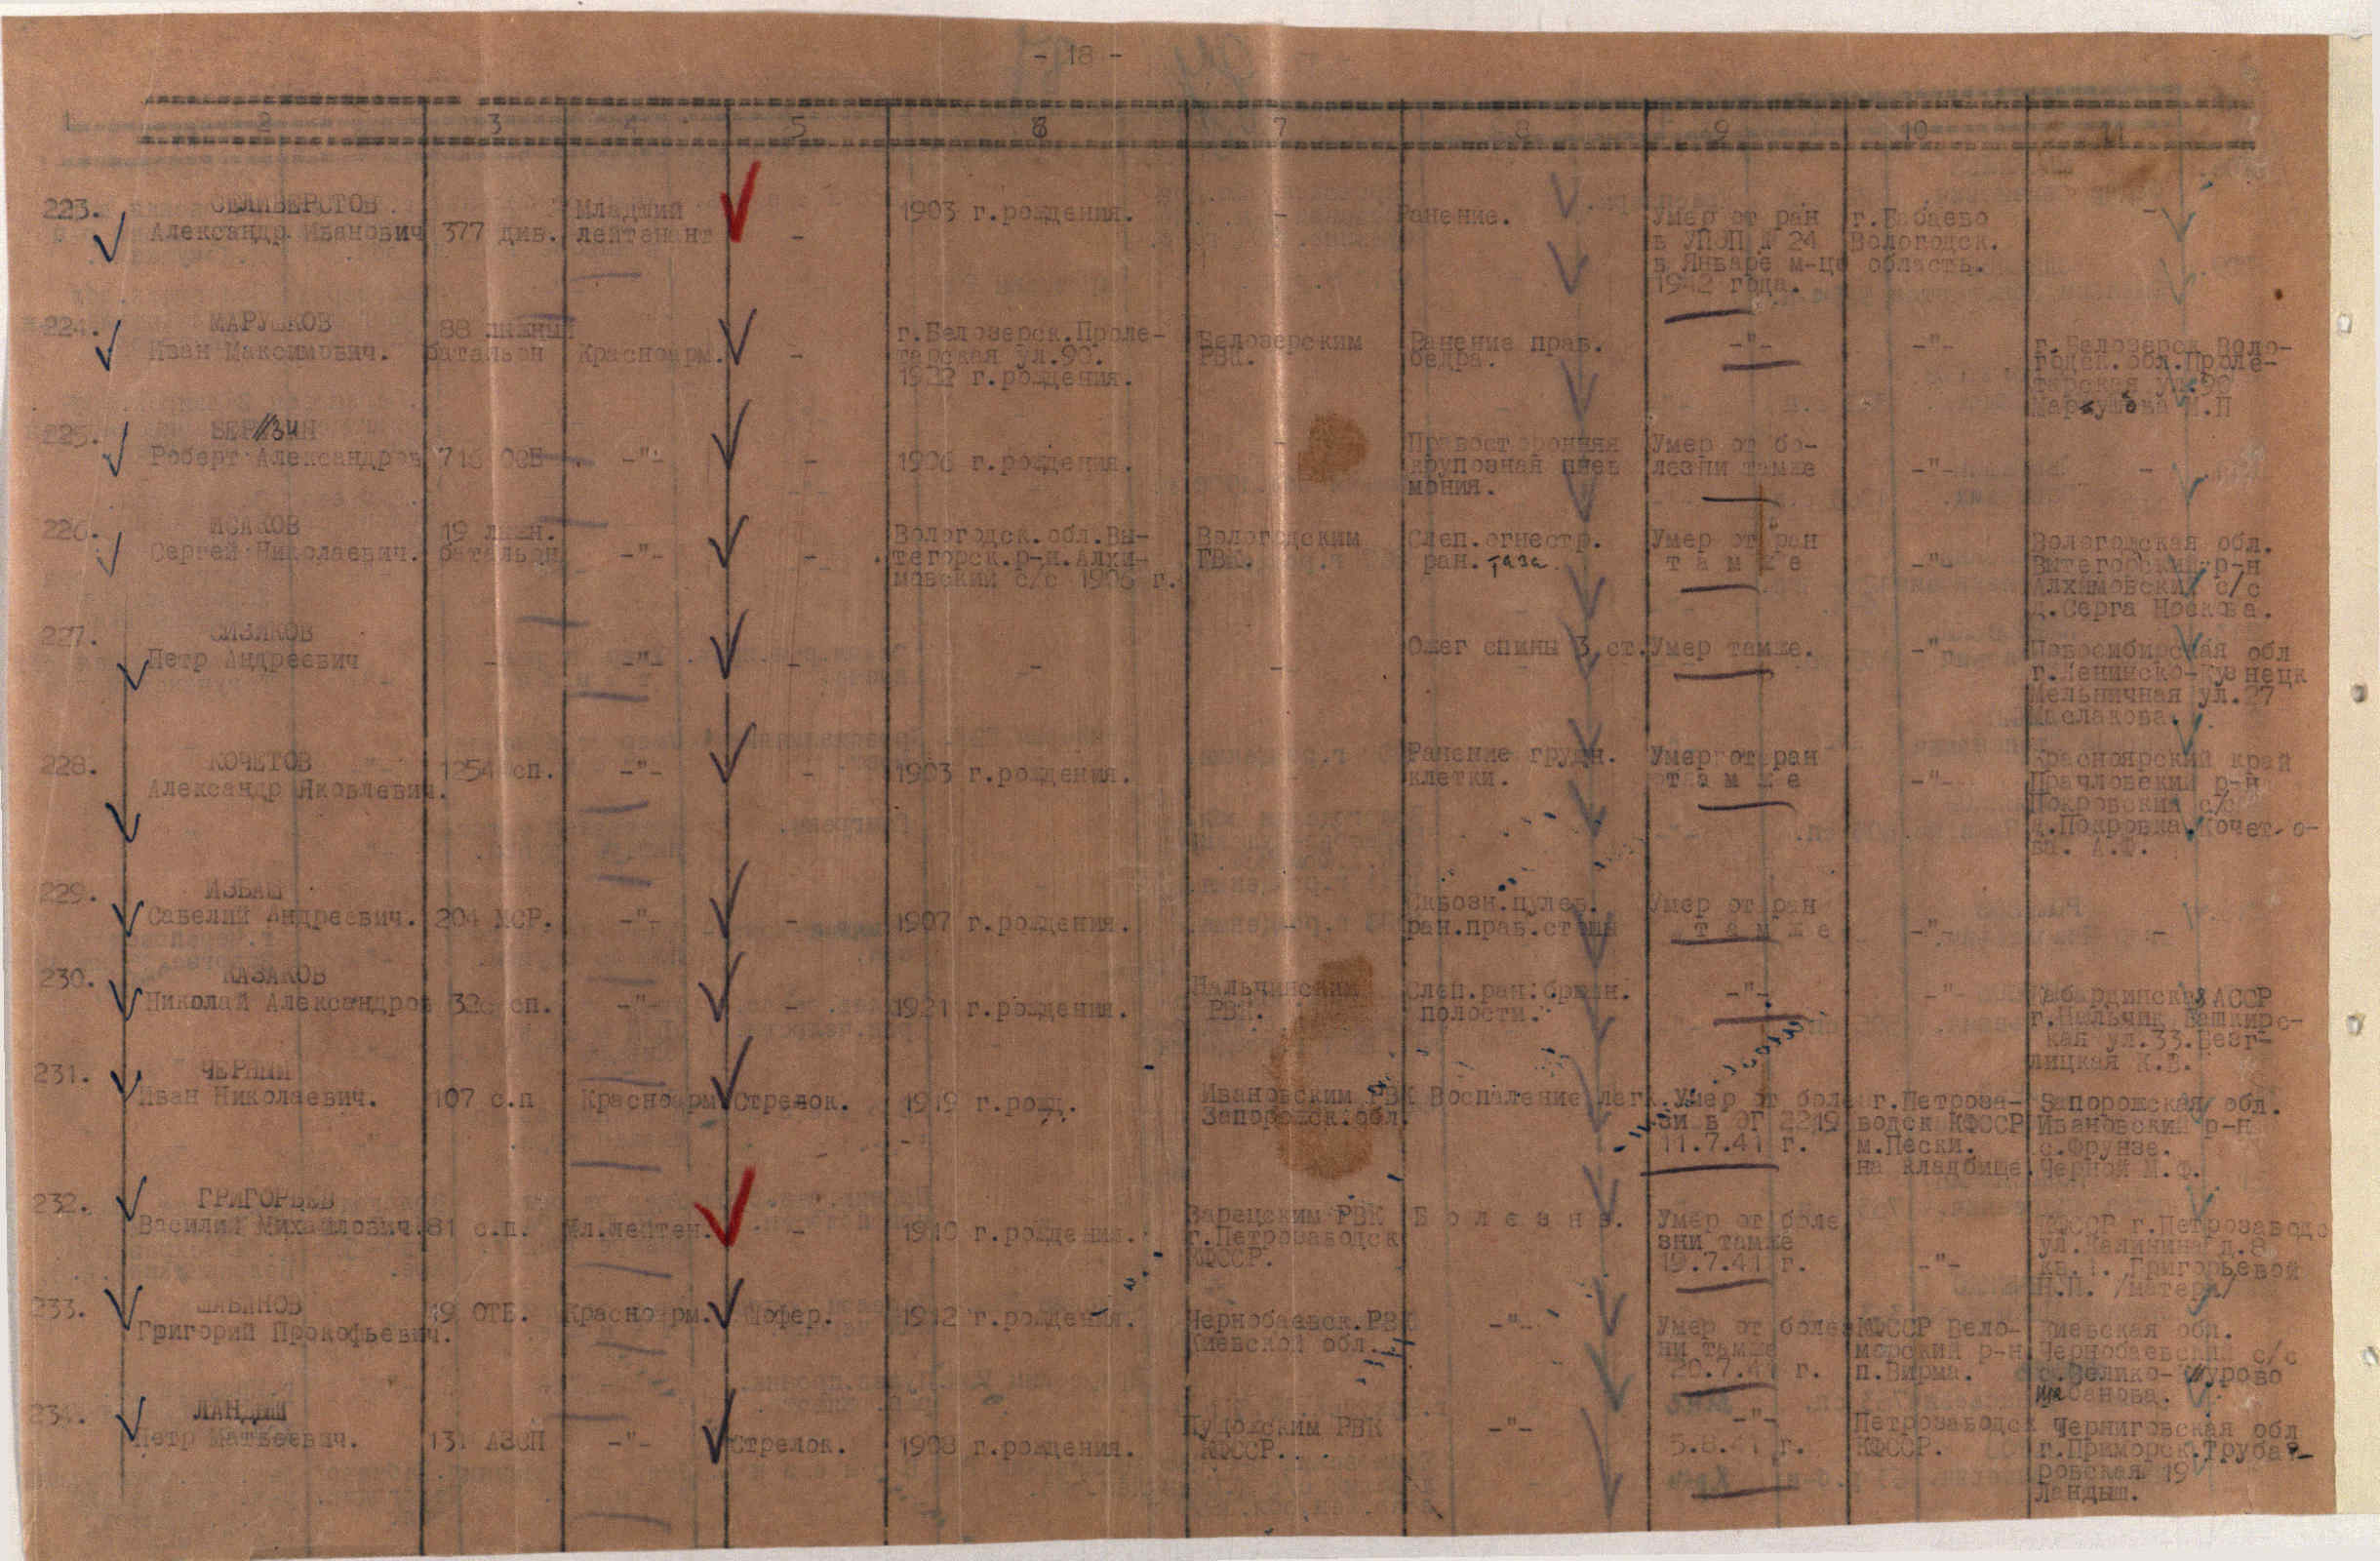 - 18 -
1 2 3 4 5 6 7 8 9 10 11
223. СЕЛИВЕРСТОВ
Александр Иванович
377 див.
Младший
лейтенант
-
1903 г.рождения.
-
Ранение.
Умер от ран
в УПЭП № 24
в Январе м-це
1942 года.
г.Бабаево
Вологодск.
область.
-
224. МАРУШКОВ
Иван Максимович.
88 лыжный
батальон
Красноарм.
-
г.Белозерск.Проле-
тарская ул.90.
1922 г.рождения.
Белозерским
РВК.
Ранение прав.
бедра.
-"-
-"-
г. Белозерск Воло-
годск. обл.Проле-
тарская ул.90
225.
Роберт Александров
-"-
-
1906 г.рождения.
-
Правосторонняя
крупозная пнев
мония.
Умер от бо-
лезни тамже
-"-
-
226. ИСАКОВ
Сергей Николаевич.
19 лыжн.
батальон
-"-
-
Вологодск.обл.Вы-
тегорск.р-н.Алхи-
мовский с/с 1906 г.
Вологодским
ГВК.
Слеп.огнестр.
ран. таза
Умер от ран
т а м ж е
-"-
Вологодская обл.
Витегорский р-н
Алхимовский с/с
д.Серга Носкова.
227. СИЗИКОВ
Петр Андреевич
-
-"-
-
-
-
Ожег спины 3 ст.
Умер тамже.
-"-
Новосибирская обл
г.Ленинско-Кузнецк
Мельничная ул.27
Маслакова.
228. КОЧЕТОВ
Александр Яковлевич.
1254 сп.
-"-
-
1903 г.рождения.
Ранение грудн.
клетки.
Умер от ран
т а м ж е
-"-
Красноярский край
Покровский с/с
д.Покровка Кочето-
ва. А.Ф.
229. ИЗБАШ
Савелий Андреевич.
-"-
-
1907 г.рождения.
-
Сквозн.пулев.
ран.прав.стопы
Умер от ран
т а м ж е
-"-
-
230. КАЗАКОВ
Николай Александров
-"-
-
1921 г.рождения.
Нальчинским
РВК.
Слеп.ран.брюшн.
полости.
-"-
-"-
Кабардинская АССР
г.Нальчик Башкирс-
кая ул.33.Безг-
лицкая К.В.
231. ЧЕРНЫЙ
Иван Николаевич.
107 с.п
Красноарм
Стрелок.
1919 г.рожд.
Ивановским РВК
Запорожск.обл.
Воспаление легк.
Умер от боле
зни в ЭГ 2219
11.7.41 г.
г.Петроза-
водск КФССР
м.Пески.
на кладбище
Запорожская обл.
Ивановский р-н
с.Фрунзе.
Черной М.Ф.
232. ГРИГОРЬЕВ
Василий Михайлович.
81 с.п.
Мл.лейтен.
-
1910 г.рождения.
Зарецским РВК
г.Петрозаводск
КФССР.
Б о л е з н ь.
Умер от боле
зни тамже
19.7.41 г.
-"-
КФССР г.Петрозаводс
ул.Калинина д.8
кв.1. Григорьевой
Н.П. /матери/
233. ШАБАНОВ
Григорий Прокофьевич.
19 ОТБ.
Красноарм.
Шофер.
1912 г.рождения.
Чернобаевск.РВК
Киевской обл.
-"-
Умер от болез
ни тамже
20.7.41 г.
КФССР Бело-
морский р-н
п.Вирма.
Киевская обл.
Чернобаевский с/с
Шабанова.
234. ЛАНДЫШ
Петр Матвеевич.
131 АЗСП
-"-
Стрелок.
1908 г.рождения.
Пудожским РВК
КФССР.
-"-
-"-
5.8.41 г.
Петрозаводск
КФССР.
Черниговская обл
г.Приморск.Трубае-
ровская 19
Ландыш.